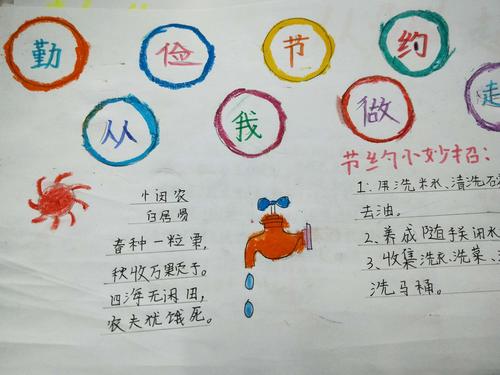 勤俭节约
从我做走
节约小妙招：
1：用洗米水、清洗
去油。
2、养成随手关闭水
3、收集洗衣、洗菜、
洗马桶。
悯农
白居易
春种一粒粟，
秋收万果子。
四海无闲田，
农夫犹饿死。